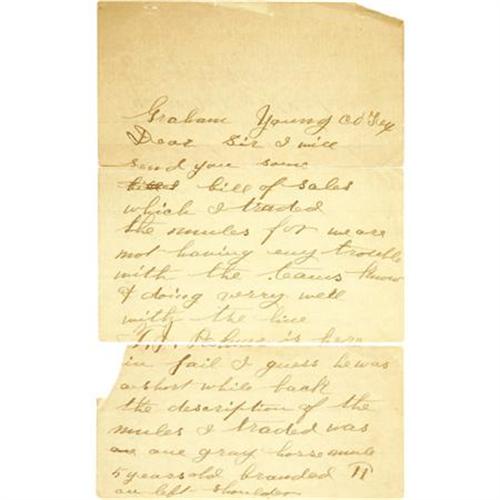 Graham Young co Tex
Dear Sir I will
send you some
bill of sales
which I traded
the mules for we are
not having eny trouble
with the teams know
& doing verry well
with the line
is here
in jail I guess he was
a short while back
the description of the
mules I traded was
one gray horse mule
5 years old branded
on left shoulder